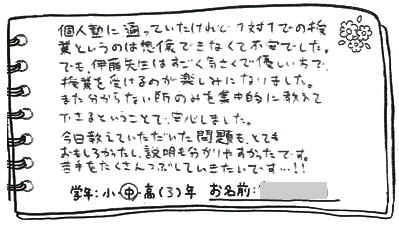 個人塾に通っていたけれど1対1での授
業というのは想像できなくて不安でした。
でも、伊藤先生はすごく気さくで優しい方で
授業を受けるのが楽しみになりました。
また分からない所のみを集中的に教えて
下さるということで、安心しました。
今日教えていただいた問題も、とても
おもしろかったし、説明も分かりやすかったです。
苦手をたくさんつぶしていきたいです…!!
学年:小・中・高(3)年 お名前: